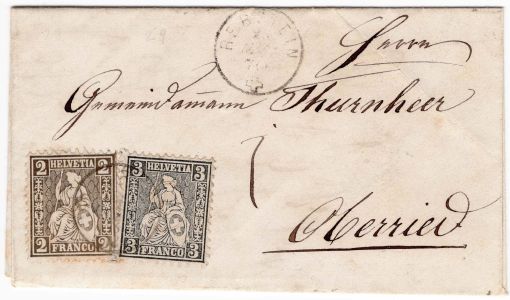 REBSTEIN
Herrn
Gemeindammann Thurnheer
Oberried
2 HELVETIA 2
2 FRANCO 2
3 HELVETIA 3
3 FRANCO 3